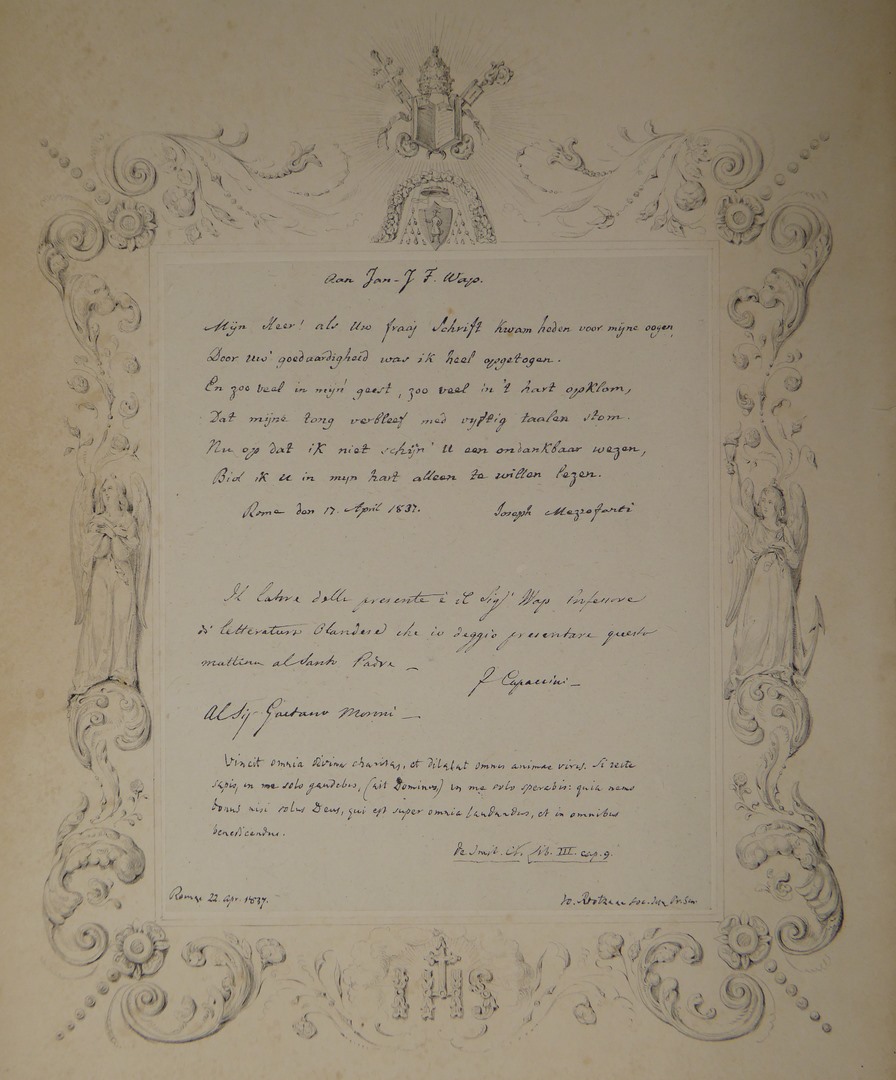 Aan Jan-J F. Wap.
Mijn Heer! als Uw fraaj Schrift kwam heden voor mijne oogen
Door uw' goedaardigheid was ik heel opgetogen.
En zoo veel in mijn' geest, zoo veel in 't hart opklom,
Dat mijne tong verbleef med vyftig taalen stom.
Nu op dat ik niet schijn' U een ondankbaar wezen,
Bid ik u in mijn hart alleen te willen lezen.
Rome den 17. April 1837.
Joseph Mezzofanti
Il latore della presente è il Sigr Wap Professore
di letteratura Olandese che io deggio presentare questa
mattina al Santo Padre —
F Capaccini —
Al Sig Gaetano Moroni —
Vincit omnia divina charitas, et dilatat omnes animae vires. Si recte
sapis, in me solo gaudebis, (ait Dominus) in me solo sperabis: quia nemo
bonus nisi solus Deus, qui est super omnia laudandus, et in omnibus
benedicendus.
De Imit. Ch. lib. III. cap. 9.
Romae 22. Apr. 1837.
Jo. Roothaan Soc. Jesu
IHS